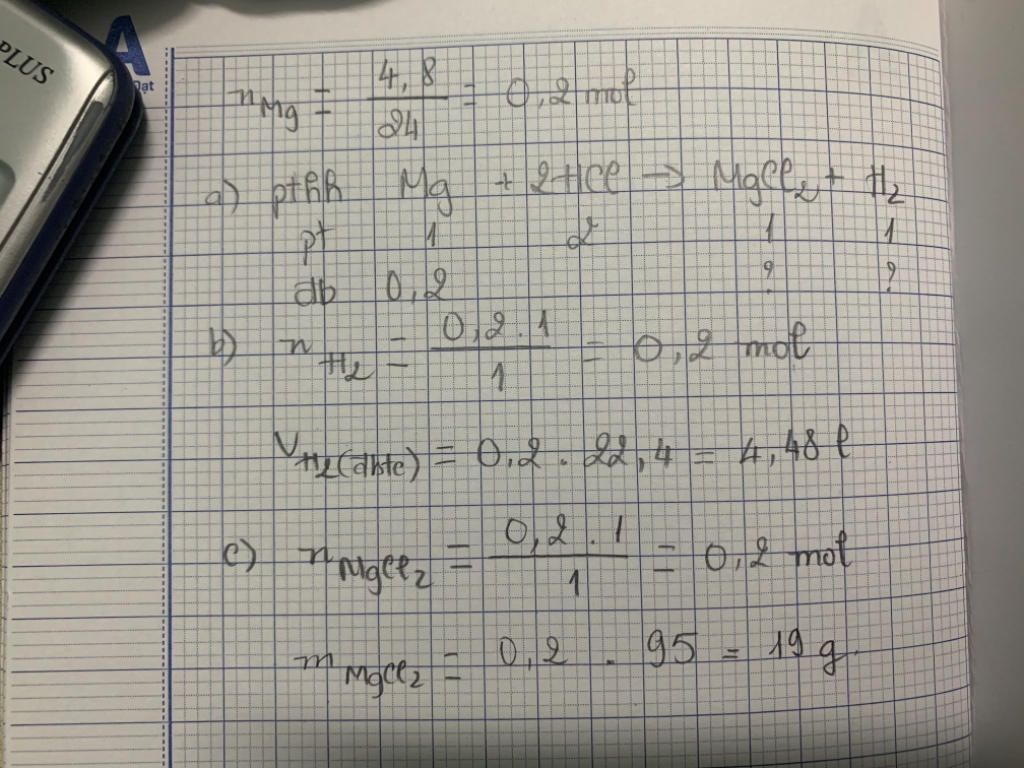 PLUS
A
Đạt
n_Mg = 4,8/24 = 0,2 mol
a) pthh Mg + 2HCl → MgCl₂ + H₂
pt 1 2 1 1
db 0,2 ? ?
b) n_H₂ = 0,2.1/1 = 0,2 mol
V_H₂(đktc) = 0,2 . 22,4 = 4,48 l
c) n_MgCl₂ = 0,2.1/1 = 0,2 mol
m_MgCl₂ = 0,2 . 95 = 19 g.